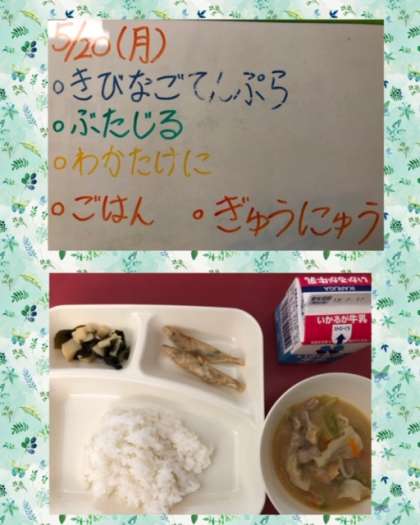 5/20(月)
○きびなごてんぷら
○ぶたじる
○わかたけに
○ごはん ○ぎゅうにゅう
IKARUGA
いかるが牛乳